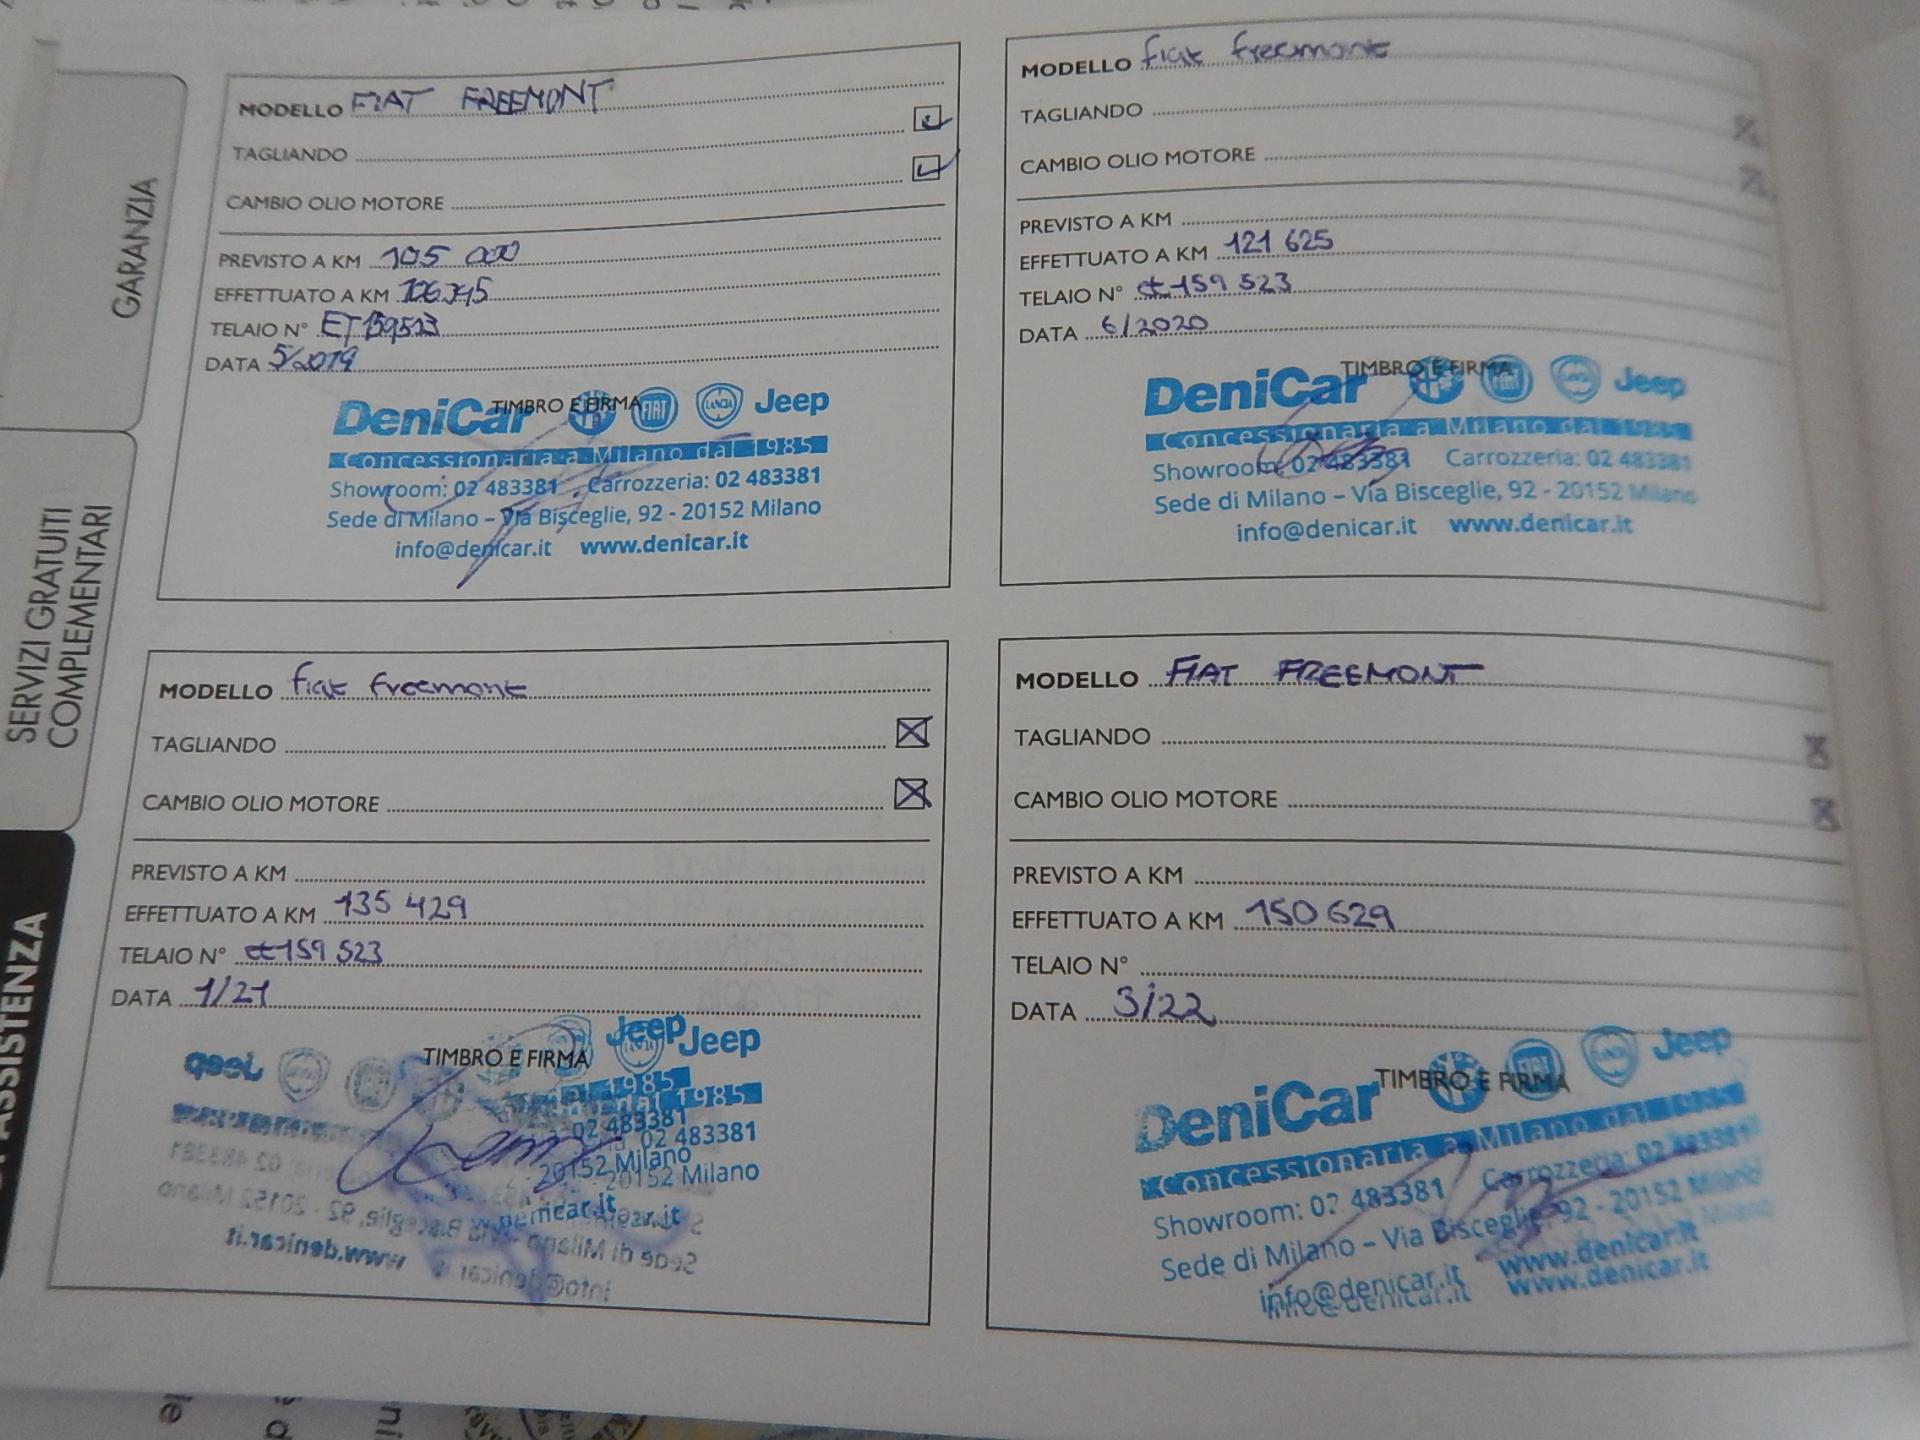 GARANZIA
SERVIZI GRATUITI
COMPLEMENTARI
ASSISTENZA
MODELLO FIAT FREEMONT
TAGLIANDO
CAMBIO OLIO MOTORE
PREVISTO A KM 105 000
EFFETTUATO A KM
TELAIO N° ET159523
DATA 5/2019
TIMBRO E FIRMA
DeniCar FIAT LANCIA Jeep
Concessionaria a Milano dal 1985
Showroom: 02 483381 Carrozzeria: 02 483381
Sede di Milano – Via Bisceglie, 92 - 20152 Milano
info@denicar.it www.denicar.it
MODELLO fiat freemont
TAGLIANDO
CAMBIO OLIO MOTORE
PREVISTO A KM
EFFETTUATO A KM 121 625
TELAIO N° et 159 523
DATA 6/2020
TIMBRO E FIRMA
DeniCar FIAT Jeep
Concessionaria a Milano dal 1985
Showroom: 02 483381 Carrozzeria: 02 483381
Sede di Milano – Via Bisceglie, 92 - 20152 Milano
info@denicar.it www.denicar.it
MODELLO fiat freemont
TAGLIANDO
CAMBIO OLIO MOTORE
PREVISTO A KM
EFFETTUATO A KM 135 429
TELAIO N° et 159 523
DATA 1/21
TIMBRO E FIRMA
Jeep Jeep
1985
dal 1985
02 483381
02 483381
20152 Milano
20152 Milano
denicar.it
MODELLO FIAT FREEMONT
TAGLIANDO
CAMBIO OLIO MOTORE
PREVISTO A KM
EFFETTUATO A KM 150 629
TELAIO N°
DATA 3/22
TIMBRO E FIRMA
DeniCar FIAT Jeep
Concessionaria a Milano dal 1985
Showroom: 02 483381 Carrozzeria: 02 483381
Sede di Milano – Via Bisceglie, 92 - 20152 Milano
info@denicar.it www.denicar.it
www.denicar.it